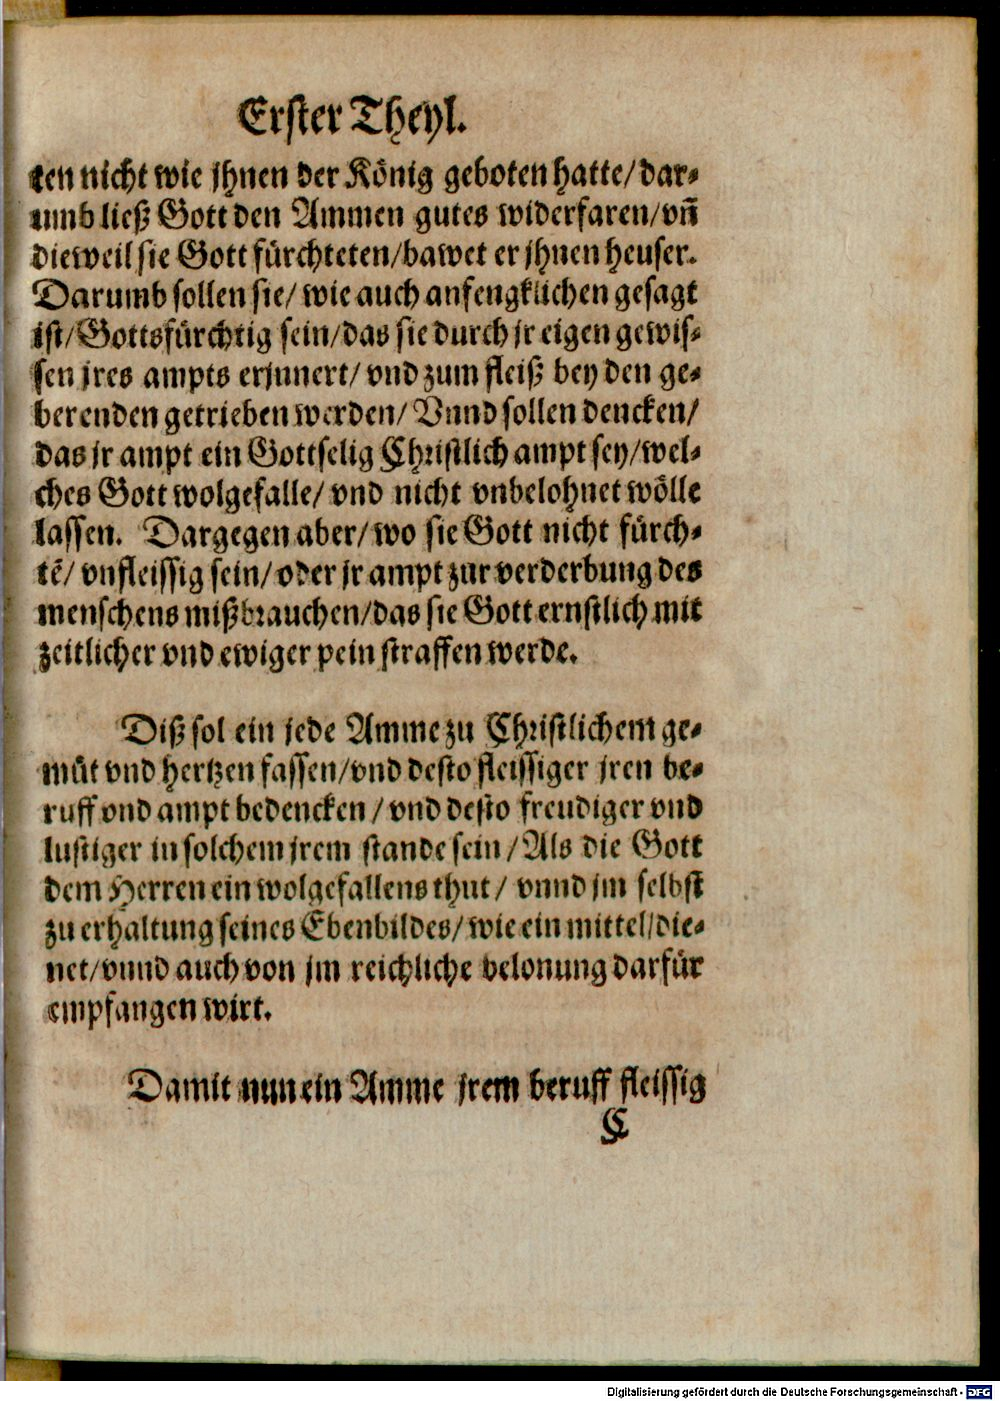 Erster Theyl.
ten nicht wie jhnen der König geboten hatte/dar-
umb ließ Gott den Ammen gutes widerfaren/vñ
dieweil sie Gott fürchteten/bawet er jhnen heuser.
Darumb sollen sie/wie auch anfengklichen gesagt
ist/Gottsfürchtig sein/das sie durch jr eigen gewis-
sen jres ampts erjnnert/vnd zum fleiß bey den ge-
berenden getrieben werden/Vnnd sollen dencken/
das jr ampt ein Gottselig Christlich ampt sey/wel-
ches Gott wolgefalle/vnd nicht vnbelohnet wölle
lassen. Dargegen aber/wo sie Gott nicht fürch-
tẽ/vnfleissig sein/oder jr ampt zur verderbung des
menschens mißbrauchen/das sie Gott ernstlich mit
zeitlicher vnd ewiger pein straffen werde.
Diß sol ein jede Amme zu Christlichem ge-
müt vnd hertzen fassen/vnd desto fleissiger jren be-
ruff vnd ampt bedencken/vnd desto freudiger vnd
lustiger in solchem jrem stande sein/Als die Gott
dem Herren ein wolgefallens thut/vnnd jm selbst
zu erhaltung seines Ebenbildes/wie ein mittel/die-
net/vnnd auch von jm reichliche belonung darfür
empfangen wirt.
Damit nun ein Amme jrem beruff fleissig
C
Digitalisierung gefördert durch die Deutsche Forschungsgemeinschaft - DFG